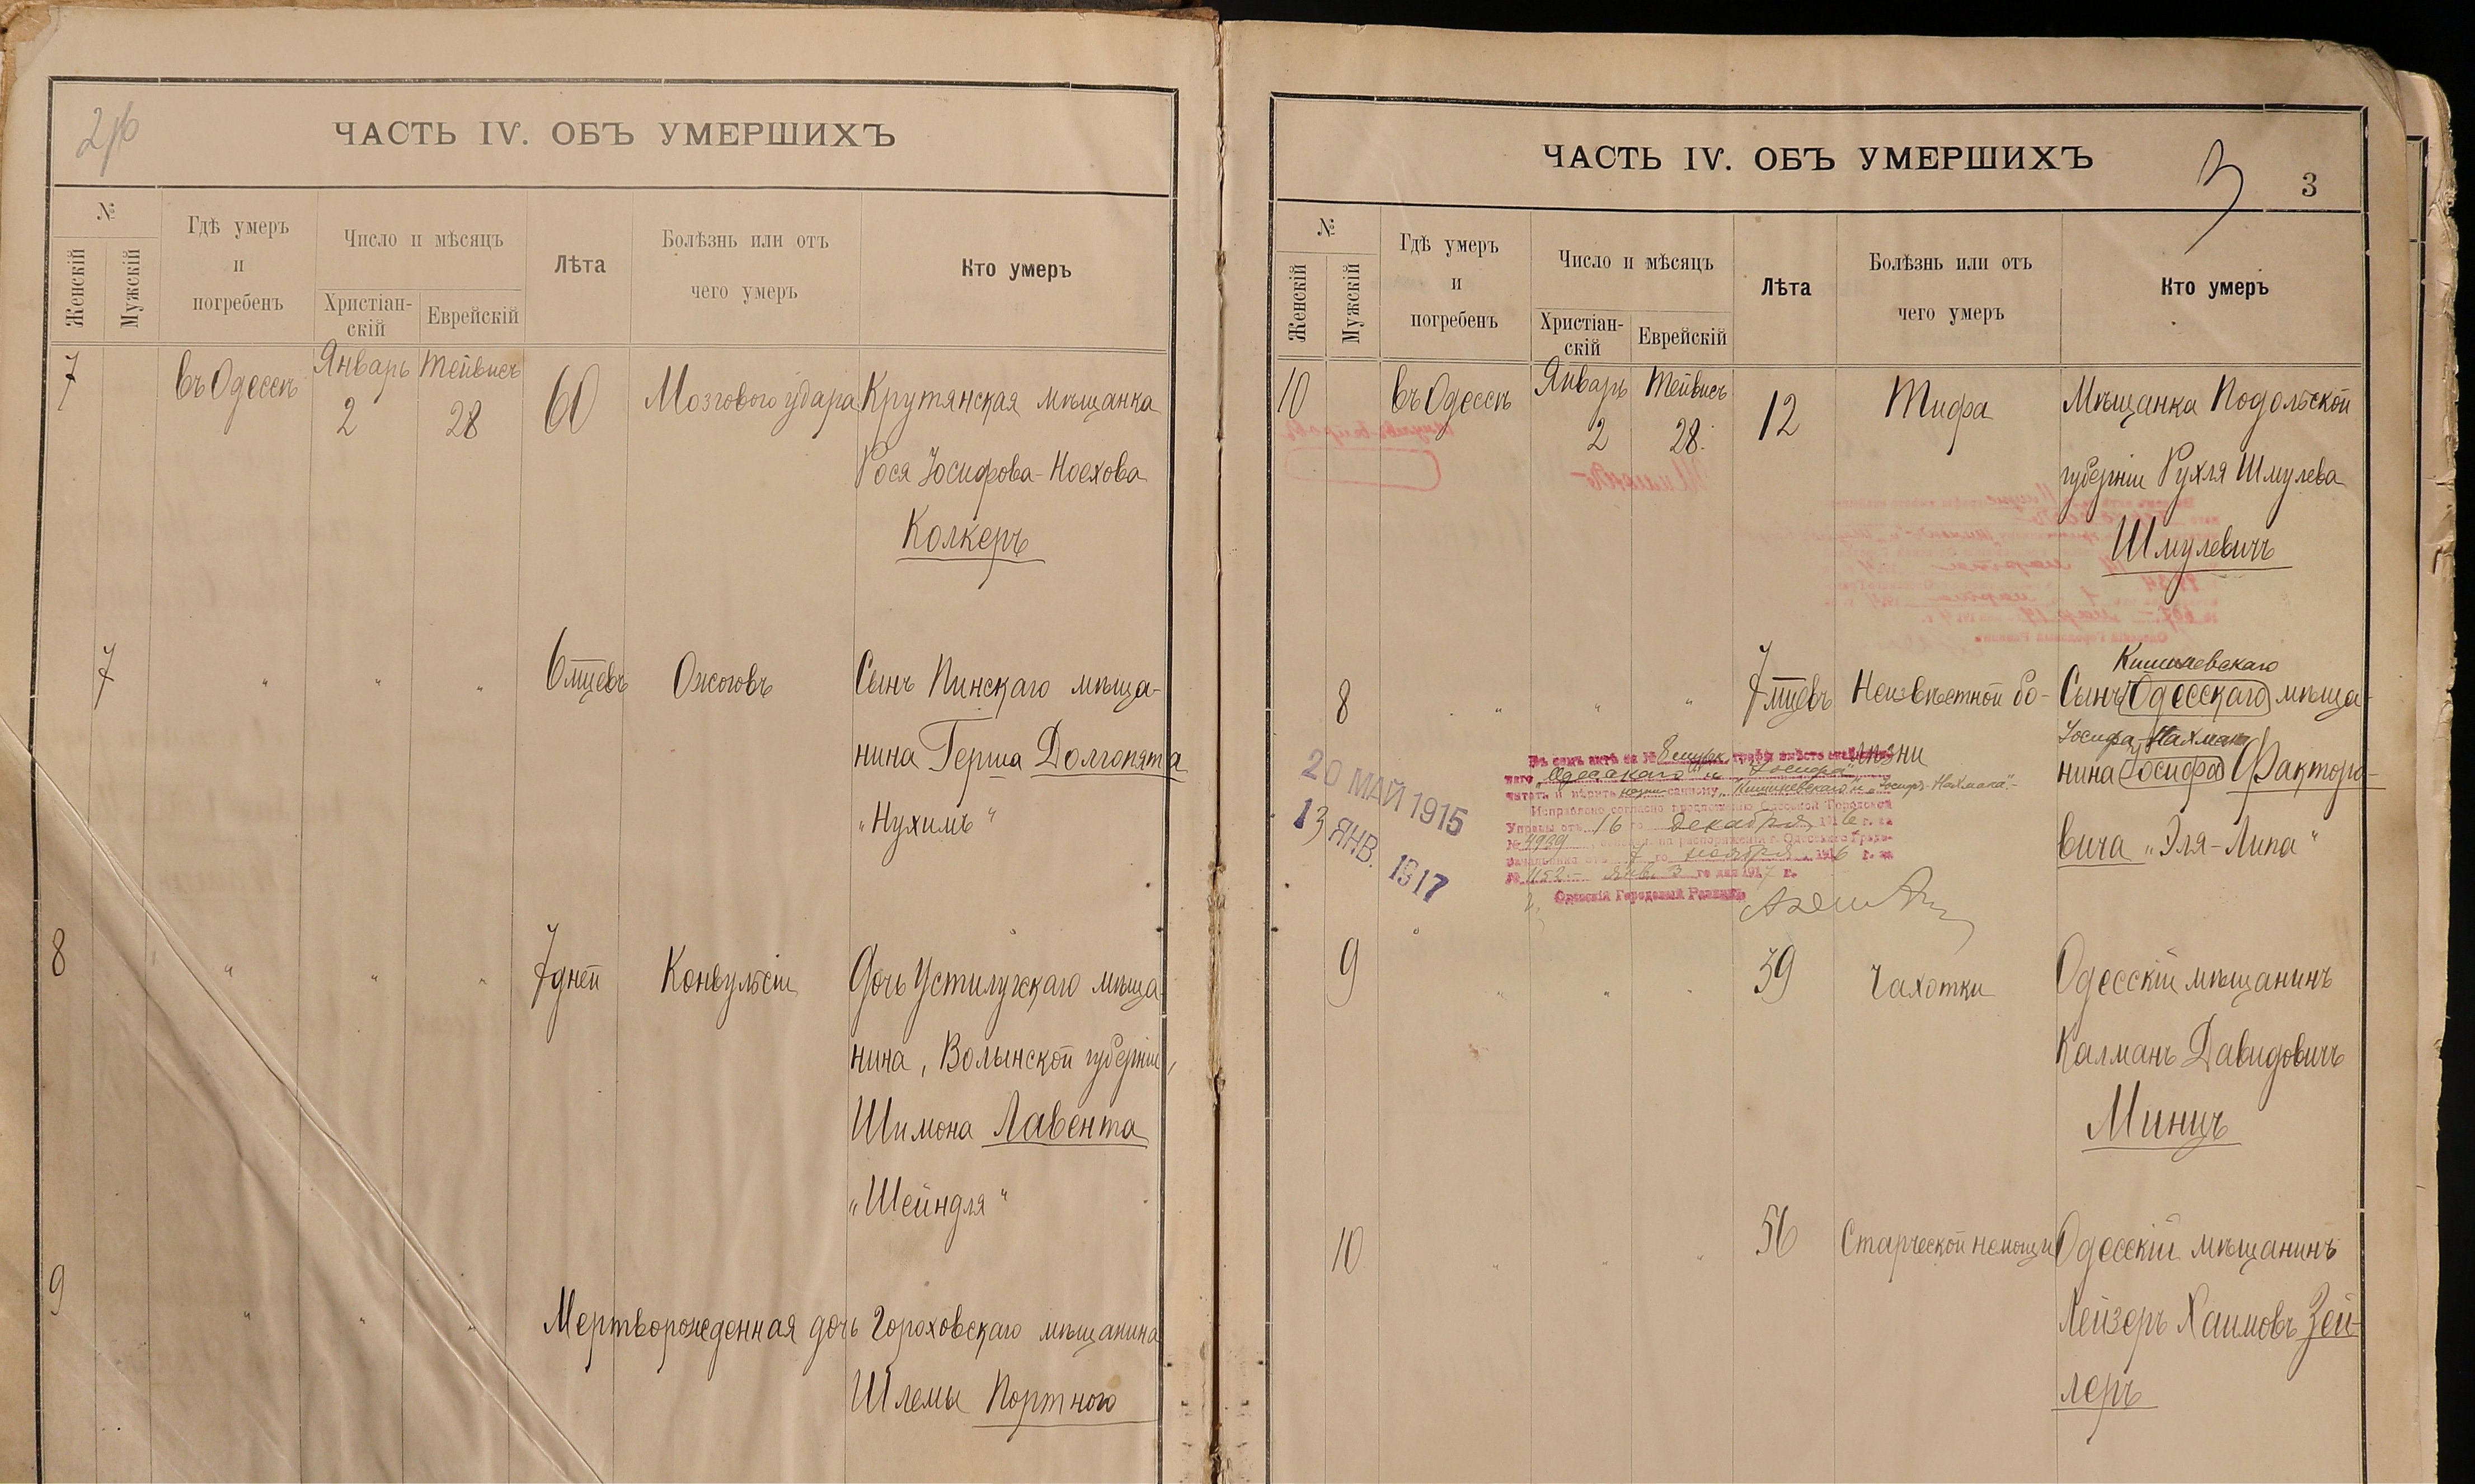 2/об
ЧАСТЬ IV. ОБЪ УМЕРШИХЪ
№
Женскій
Мужскій
Гдѣ умеръ
и
погребенъ
Число и мѣсяцъ
Христіан-
скій
Еврейскій
Лѣта
Болѣзнь или отъ
чего умеръ
Кто умеръ
7 въ Одессѣ Январь 2 Тейвисъ 28 60 Мозгового удара Крутянская мѣщанка
Рося Іосифова-Ноехова
Колкеръ
7 " " " 6 мцевъ Ожоговъ Сынъ Пинскаго мѣща-
нина Герша Долгопята
"Нухимъ"
8 " " " 7 дней Конвульсіи Дочь Устилугскаго мѣща-
нина, Волынской губерніи,
Шимона Лавента
"Шейндля"
9 " " " Мертворожденная дочь Гороховскаго мѣщанина
Шлемы Портного
ЧАСТЬ IV. ОБЪ УМЕРШИХЪ
3
3
№
Женскій
Мужскій
Гдѣ умеръ
и
погребенъ
Число и мѣсяцъ
Христіан-
скій
Еврейскій
Лѣта
Болѣзнь или отъ
чего умеръ
Кто умеръ
10 въ Одессѣ Январь 2 Тейвисъ 28. 12 Тифа Мѣщанка Подольской
губерніи Рухля Шмулева
Шмулевичъ
Кишиневскаго
8 " " " 7 мцевъ Неизвѣстной бо- Сынъ Одесскаго мѣща-
Іосифа Нахмана
лѣзни нина Іосифа Факторо-
вича "Эля-Липа"
20 МАЙ 1915
13 ЯНВ. 1917
Въ семъ актѣ за № 8 графѣ вмѣсто
"Одесскаго" и "Іосифа"
читать и вѣрить "Кишиневскаго" и "Іосифъ-Нахмана".-
Исправлено согласно предложенію Одесской Городской
Управы отъ 16 го Декабря 1916 г. за
№ 4989 распоряженіи г. Одесскаго Градо-
начальника отъ 7 го ноября 1916 г. за
№ 1152.- янв. 3 го дня 1917 г.
Одесскій Городовый Раввинъ
9 " " " 39 Чахотки Одесскій мѣщанинъ
Калманъ Давидовичъ
Миницъ
10 " " " 56 Старческой немощи Одесскій мѣщанинъ
Лейзеръ Хаимовъ Зей-
леръ